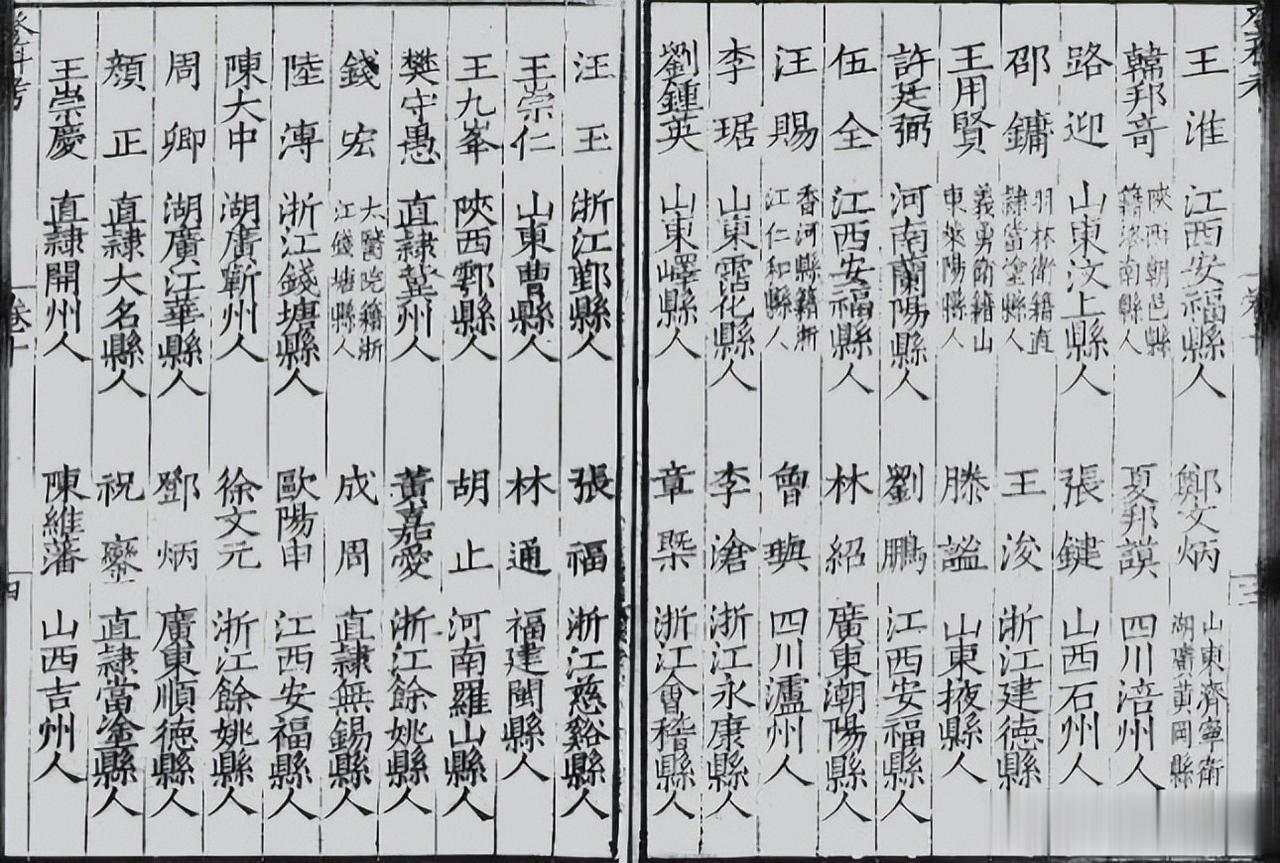 王淮 江西安福縣人 鄭文炳 山東濟寧衛湖廣黃岡縣
韓邦奇 陝西朝邑縣籍洛南縣人 夏邦謨 四川涪州人
路迎 山東汶上縣人 張鍵 山西石州人
邵鏞 羽林衛籍直隸當塗縣人 王浚 浙江建德縣人
王用賢 義勇衛籍山東萊陽縣人 滕謐 山東掖縣人
許廷弼 河南蘭陽縣人 劉鵬 江西安福縣人
伍全 江西安福縣人 林紹 廣東潮陽縣人
汪賜 香河縣籍浙江仁和縣人 曾璵 四川瀘州人
李琚 山東霑化縣人 李滄 浙江永康縣人
劉鍾英 山東嶧縣人 章槩 浙江會稽縣人
汪玉 浙江鄞縣人 張福 浙江慈谿縣人
王崇仁 山東曹縣人 林通 福建閩縣人
王九峯 陝西鄠縣人 胡止 河南羅山縣人
樊守愚 直隸冀州人 黃嘉愛 浙江餘姚縣人
錢宏 太醫院籍浙江錢塘縣人 成周 直隸無錫縣人
陸溥 浙江錢塘縣人 歐陽申 江西安福縣人
陳大中 湖廣蘄州人 徐文元 浙江餘姚縣人
周卿 湖廣江華縣人 鄧炳 廣東順德縣人
顏正 直隸大名縣人 祝鑾 直隸當塗縣人
王崇慶 直隸開州人 陳維藩 山西吉州人
登科考 卷十 四